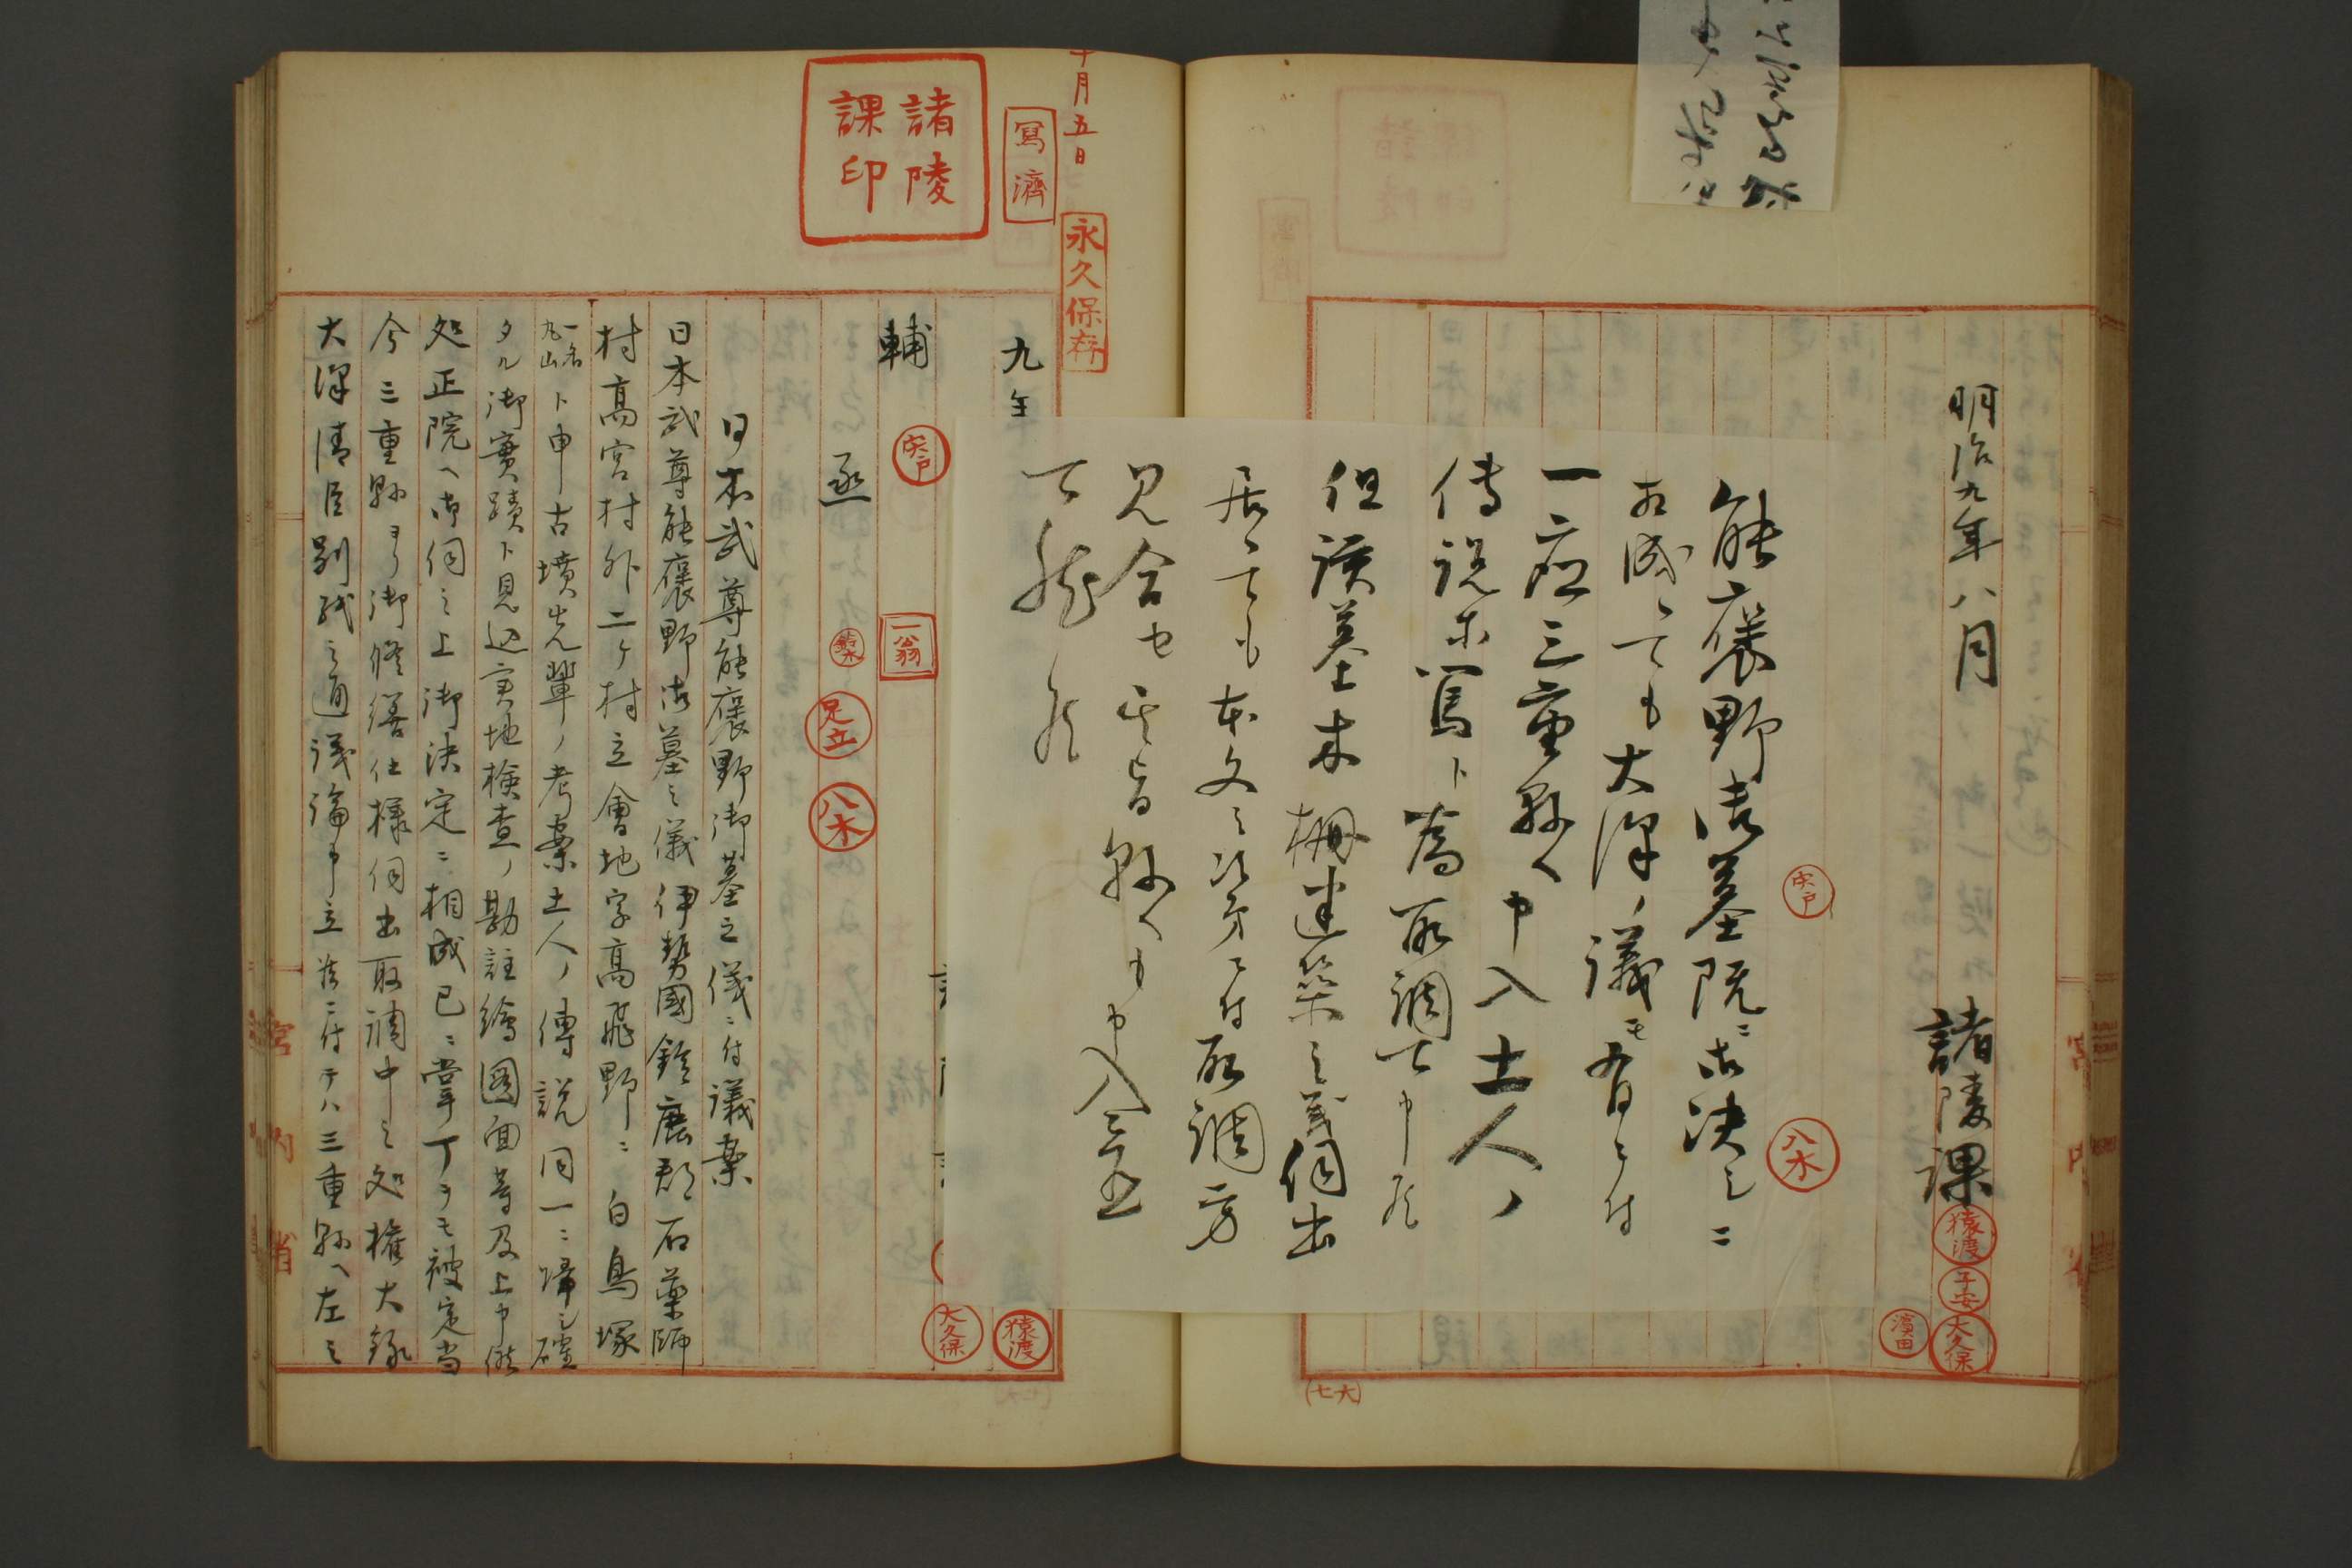 明治九年八月
諸陵課
猿渡
子安
大久保
濱田
宍戸
八木
能褒野御墓既ニ御決定ニ
相成候ても大澤ノ議モ有之付
一應三重縣へ申入土人ノ
傳説等篤ト為取調可申候
但該墓木柵建築之義伺出
居候ても本文之次第ニ付取調方
見合セ候旨縣へも申入
可然候
十月五日
寫濟
永久保存
諸陵課印
九年
猿渡
大久保
輔
宍戸
一翁
丞
足立
八木
日本武尊能褒野御墓之儀ニ付議案
日本武尊能褒野御墓之儀伊勢國鈴鹿郡石藥師
村高宮村外二ケ村立會地字高飛野ニ白鳥塚
一名丸山ト申古墳先輩ノ考案土人ノ傳説同一ニ帰シ確
タル御實蹟ト見込実地検査ノ勘註繪圖面等及上申候
処正院へ御伺之上御決定ニ相成已ニ掌丁ヲモ被定当
今三重縣ヨリ御修繕仕様伺出取調中之処権大録
大澤清臣別紙之通議論申立候ニ付テハ三重縣へ左之
宮内省
(七六)